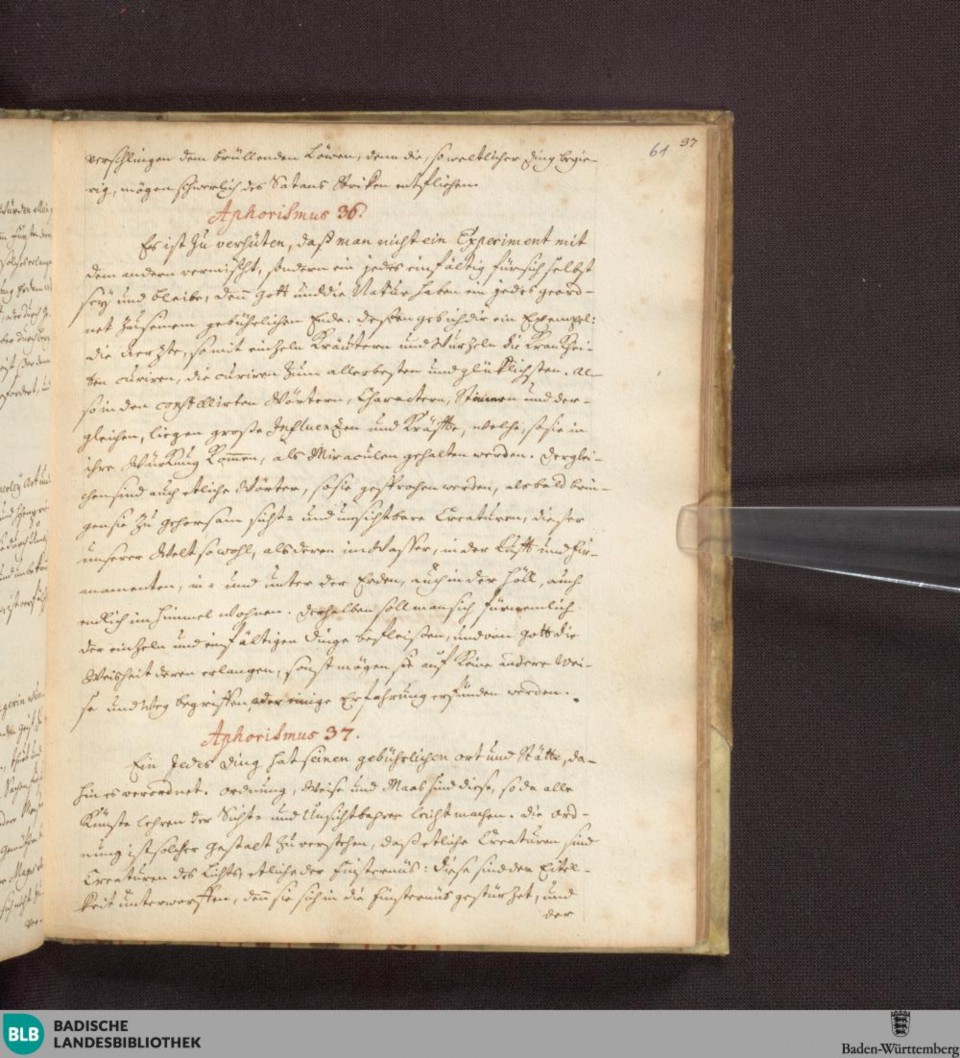 61 37
verschlingen dem brüllenden Löwen, denn die, so weltlicher Ding begie-
rig, mögen schwerlich des Satans Striken entfliehen.
Aphorismus 36.
Es ist zu verhüten, daß man nicht ein Experiment mit
dem andern vermischt, sondern ein jedes einfältig für sich selbst
sey und bleibe, denn Gott und die Natur haben ein jedes geord-
net zu seinem gebührlichen Ende. Dessen geb ich dir ein Exempel:
die Aerzte, so mit einzeln Kräutern und Wurzeln die Krankhei-
ten curiren, die curiren zum allerbesten und glüklichsten. Al-
so in den constellirten Wörtern, Charactern, Steinen und der-
gleichen, liegen große Influenzen und Kräffte, welche, so sie in
ihre Würkung kommen, als Miraculen gehalten werden. Derglei-
chen sind auch etliche Wörter, so sie gesprochen werden, alsbald brin-
gen sie zu Gehorsam sicht- und unsichtbare Creaturen, dieser
unserer Welt sowohl, als deren im Wasser, in der Lufft und Fir-
manenten, in- und unter der Erden, auch in der Höll, auch
endlich im Himmel wohnen. Derhalben soll man sich fürnemlich
der einzeln und einfältigen Dinge befleißen, und von Gott die
Weisheit deren erlangen, sonst mögen sie auf keine andere Wei-
se und Weg begriffen, oder einige Erfahrung erfunden werden.
Aphorismus 37.
Ein Jedes Ding hat seinen gebührlichen Ort und Stätte, da-
hin es verordnet. Ordnung, Weise und Maas sind diese, so da alle
Künste lehren der Sicht- und Unsichtbahren leicht machen. Die Ord-
nung ist solcher Gestalt zu verstehen, daß etliche Creaturen sind
Creaturen des Lichts, etliche der Finsternüs: diese sind der Eitel-
keit unterworffen, denn sie sich in die Finsternüs gestürzet, und
der
BLB
BADISCHE
LANDESBIBLIOTHEK
Baden-Württemberg